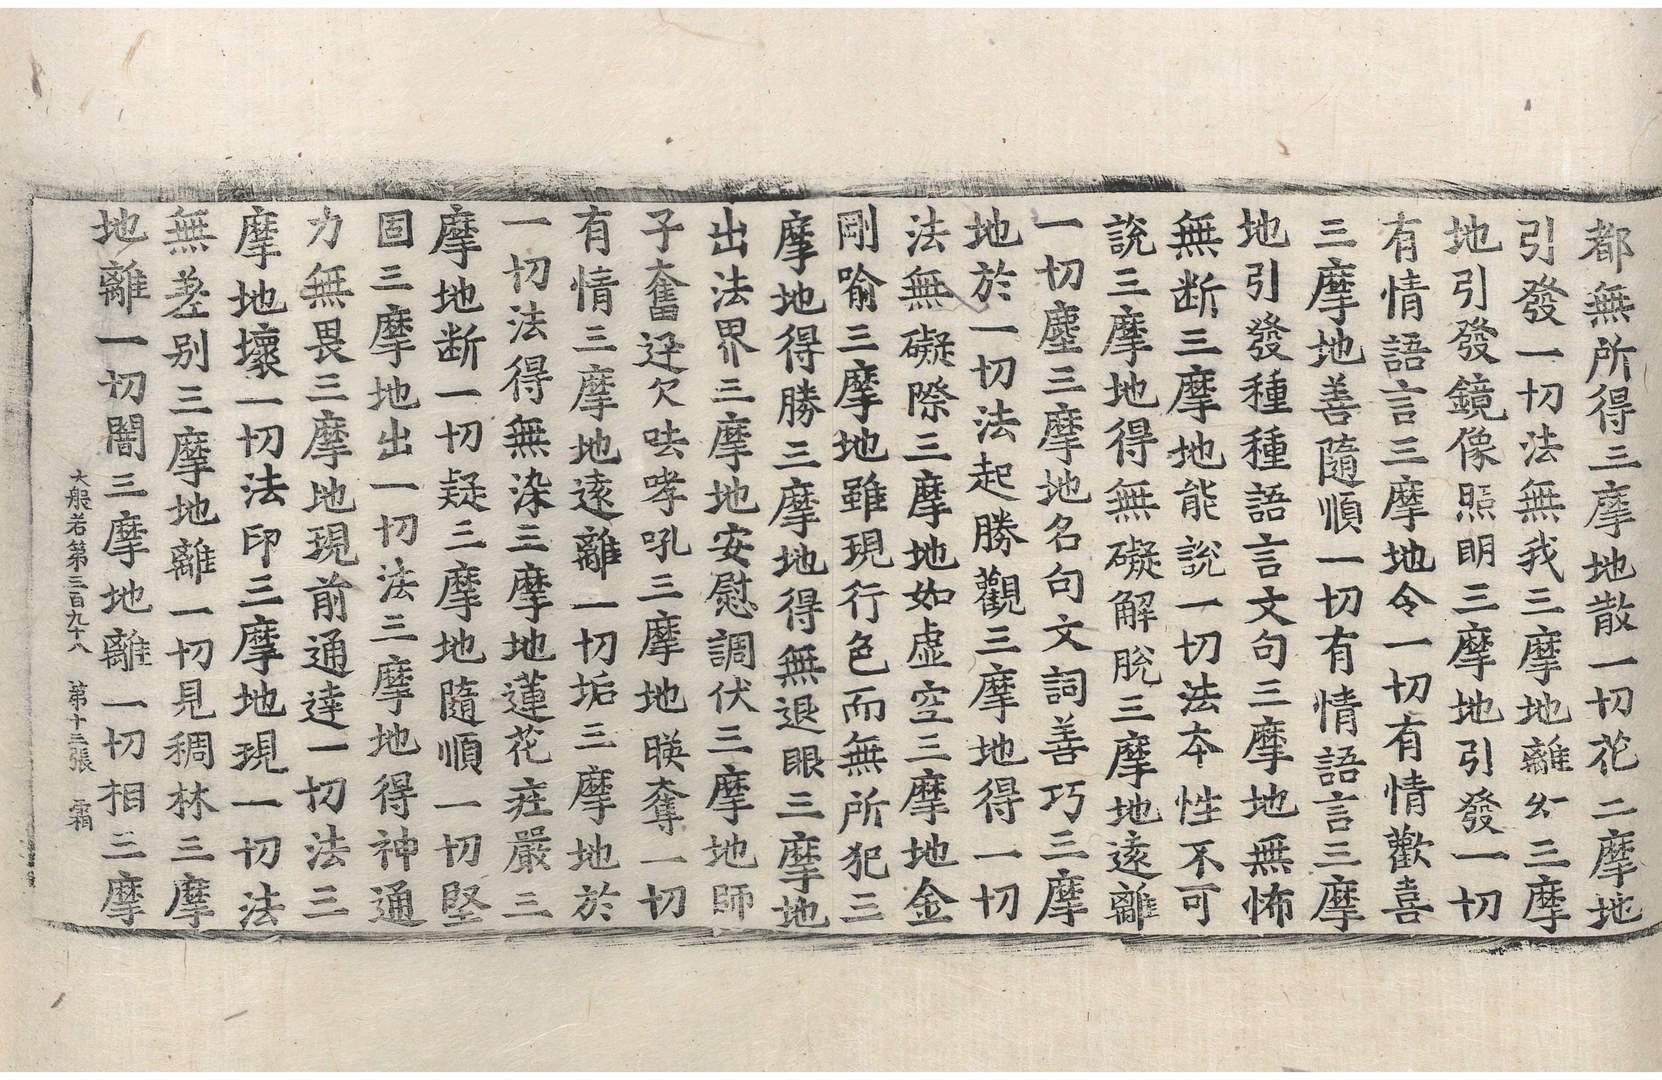 都無所得三摩地散一切花三摩地
引發一切法無我三摩地離幻三摩
地引發鏡像照明三摩地引發一切
有情語言三摩地令一切有情歡喜
三摩地善隨順一切有情語言三摩
地引發種種語言文句三摩地無怖
無断三摩地能說一切法本性不可
說三摩地得無礙解脫三摩地遠離
一切塵三摩地名句文詞善巧三摩
地於一切法起勝觀三摩地得一切
法無礙際三摩地如虛空三摩地金
剛喻三摩地雖現行色而無所犯三
摩地得勝三摩地得無退眼三摩地
出法界三摩地安慰調伏三摩地師
子奮迅欠呿哮吼三摩地映奪一切
有情三摩地遠離一切垢三摩地於
一切法得無染三摩地蓮花莊嚴三
摩地断一切疑三摩地隨順一切堅
固三摩地出一切法三摩地得神通
力無畏三摩地現前通達一切法三
摩地壞一切法印三摩地現一切法
無差别三摩地離一切見稠林三摩
地離一切闇三摩地離一切相三摩
大般若第三百九十八 第十三張 霜